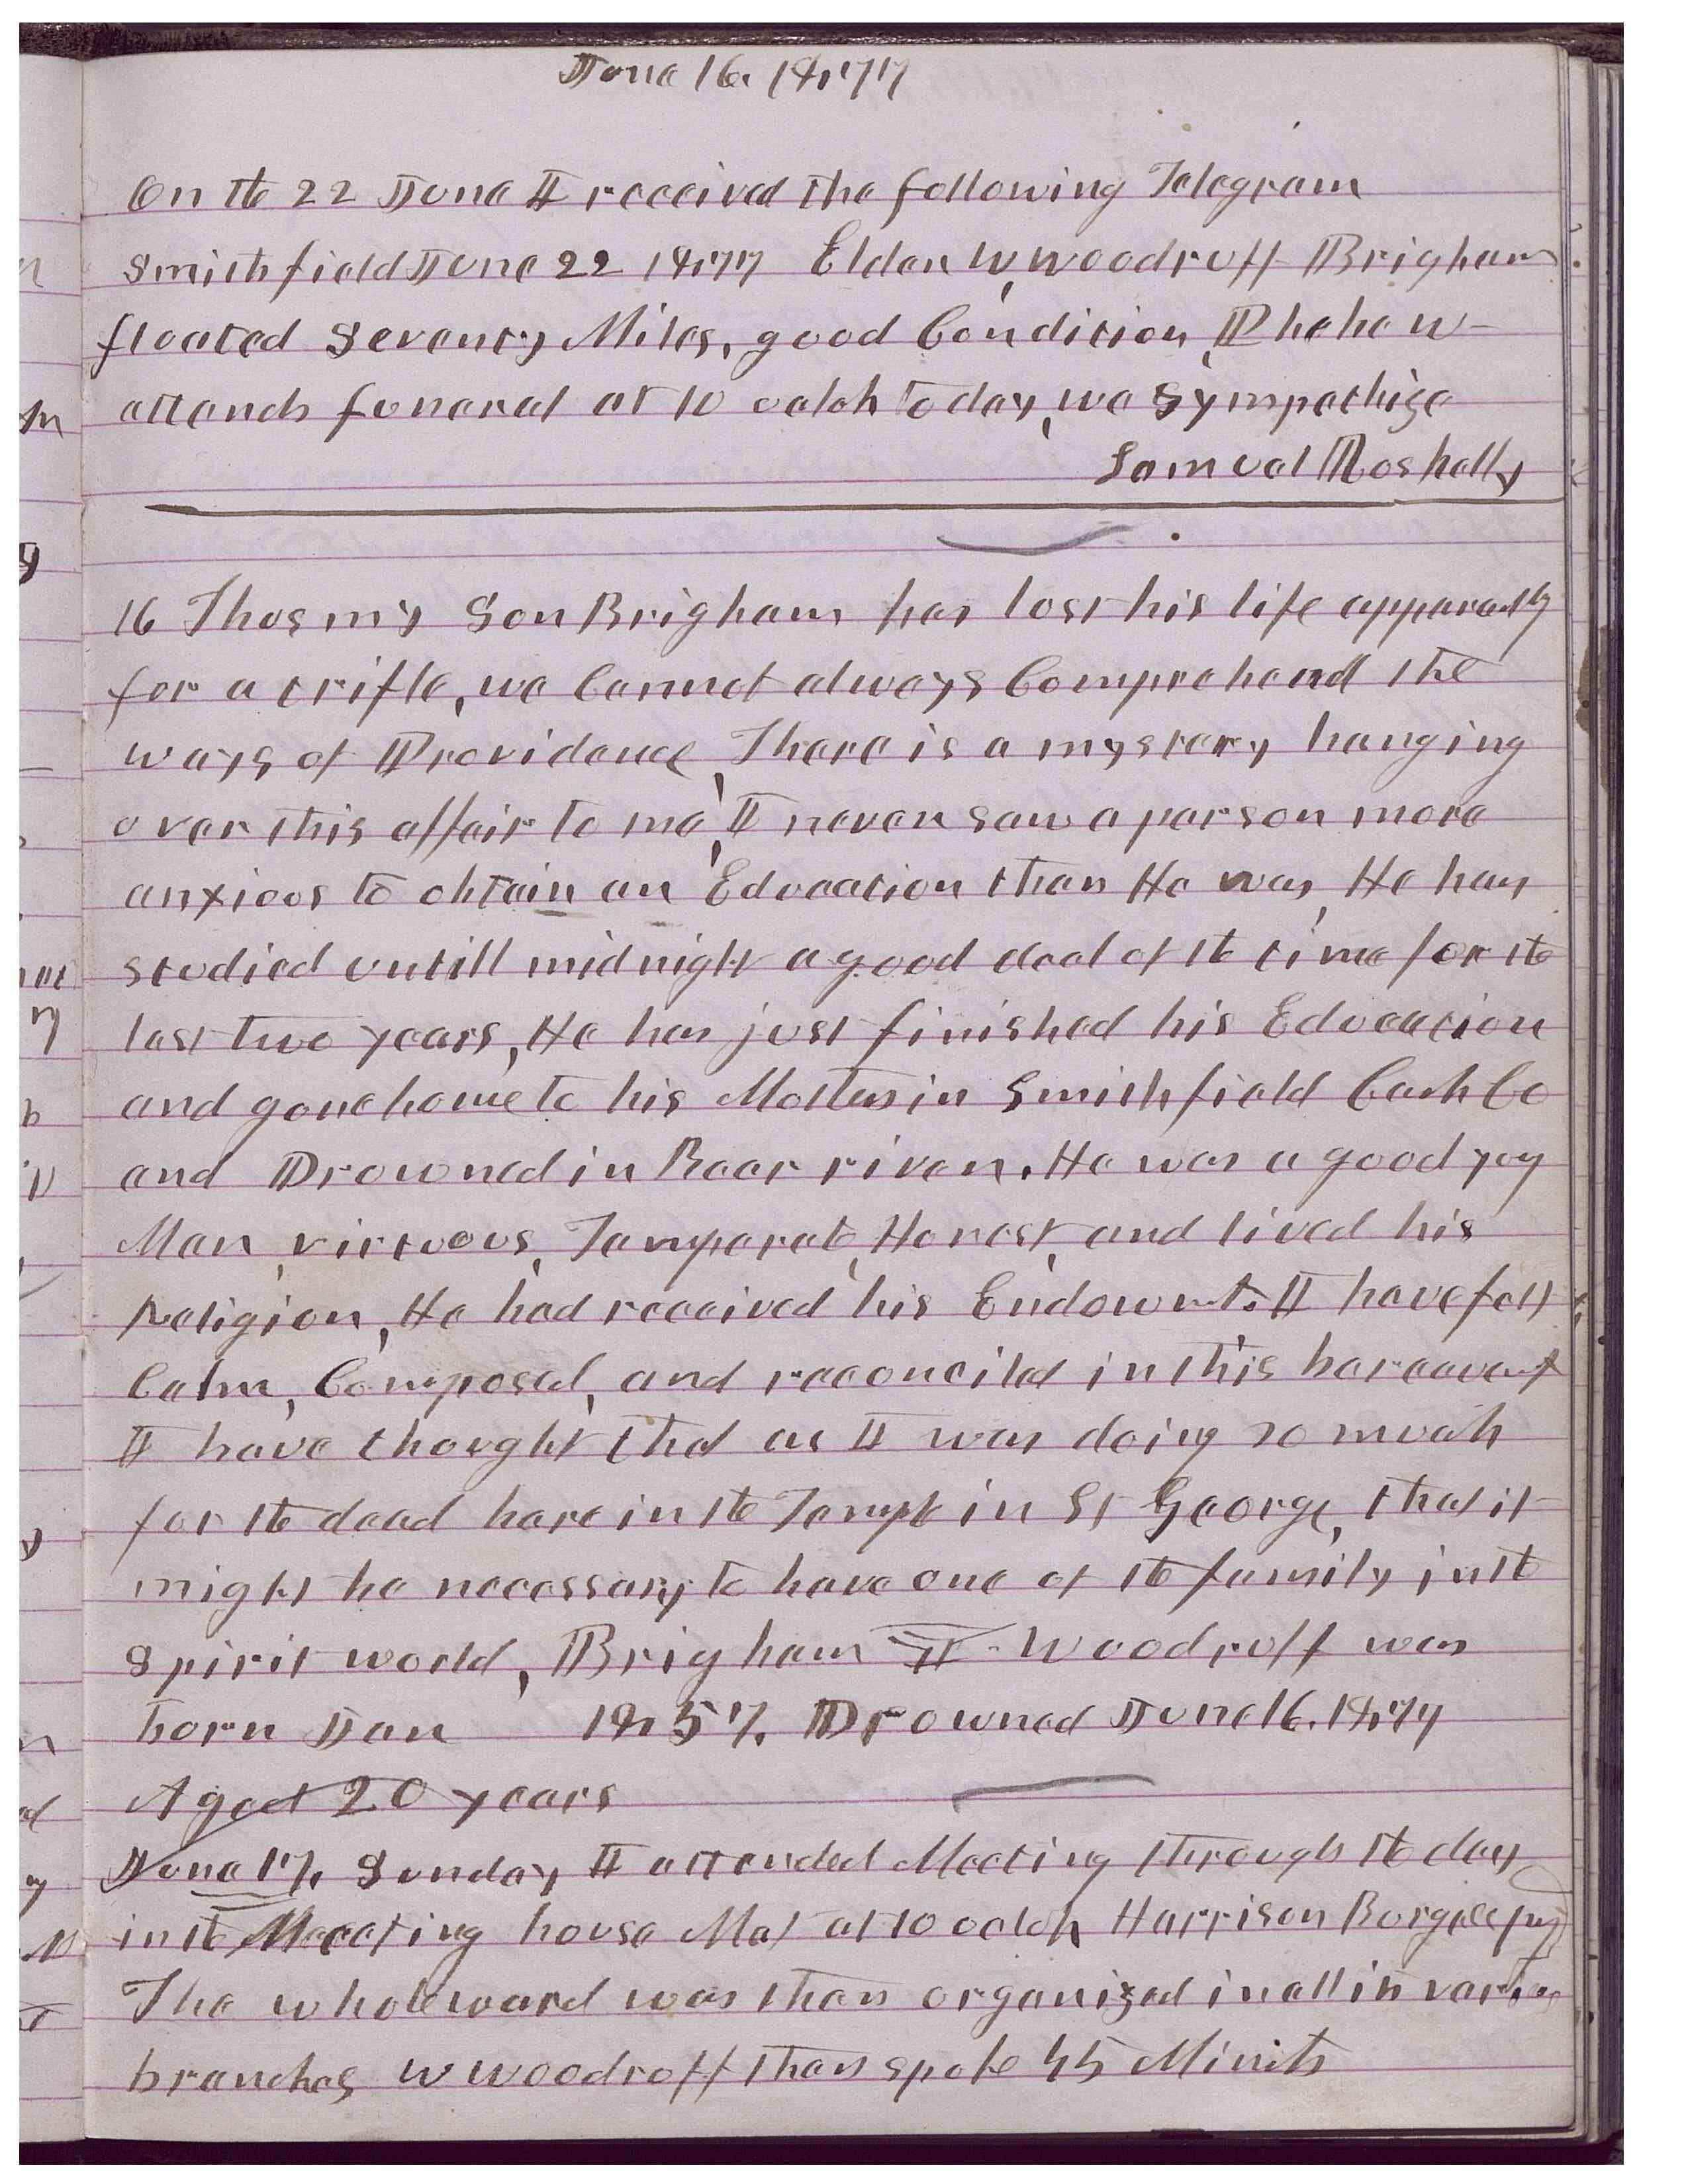 June 16. 1877
On the 22 June I received the following Telegram
Smithfield June 22 1877 Elder W, Woodruff Brigham
floated Seventy Miles, good Condition, Phebe W
attends funeral at 10 oclok to day, we Sympathize
Samuel Roskelly
16 Thus my Son Brigham has lost his life apparently
for a trifle, we Cannot always Comprehend the
ways of Providence, There is a mystery hanging
over this affair to me, I never saw a person more
anxious to obtain an Education than He was, He has
studied untill midnight a good deal of the time for the
last two years, He has just finished his Education
and gone home to his Mother in Smithfield Cash Co
and Drowned in Bear river. He was a good yog
Man, virtuous, Temperate, Honest, and lived his
religion, He had received his Endowmt. I have felt
Calm, Composed, and reconciled in this bereavemt
I have thought that as I was doing so much
for the dead here in the Temple in St George, that it
might be necessary to have one of the family in the
Spirit world, Brigham Y Woodruff was
born Jan 1857. Drowned June 16. 1877
Aged 20 years
June 17, Sunday I attended Meeting through the day
in the Meeting house Met at 10 oclok Harrison Burgess
The whole ward was then organized in all its various
branches W Woodruff then spoke 45 Minits